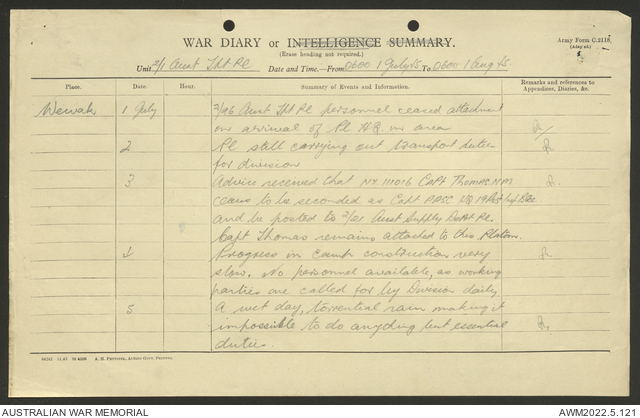 WAR DIARY or INTELLIGENCE SUMMARY.
(Erase heading not required.)
Army Form C.2118.
Unit 2/1 Aust Tpt Pl Date and Time—From 0600 1 July 45 To 0600 1 Aug 45
Place. Date. Hour. Summary of Events and Information. Remarks and references to Appendices, Diaries, &c.
Wewak 1 July 2/96 Aust Tpt Pl personnel ceased attachment
on arrival of Pl HQ in area
2 Pl still carrying out transport duties
for division
3 Advice received that NX 111016 Capt Thomas N.M.
ceases to be seconded as Capt AASC HQ 19
and be posted to 2/21 Aust Supply Depot Pl.
Capt Thomas remains attached to this Platoon.
4 Progress in camp construction very
slow. No personnel available, as working
parties are called for by Division daily
5 A wet day, torrential rain making it
impossible to do anything but essential
duties.
A. H. Pettifer, Acting Govt. Printer.
AUSTRALIAN WAR MEMORIAL
AWM2022.5.121